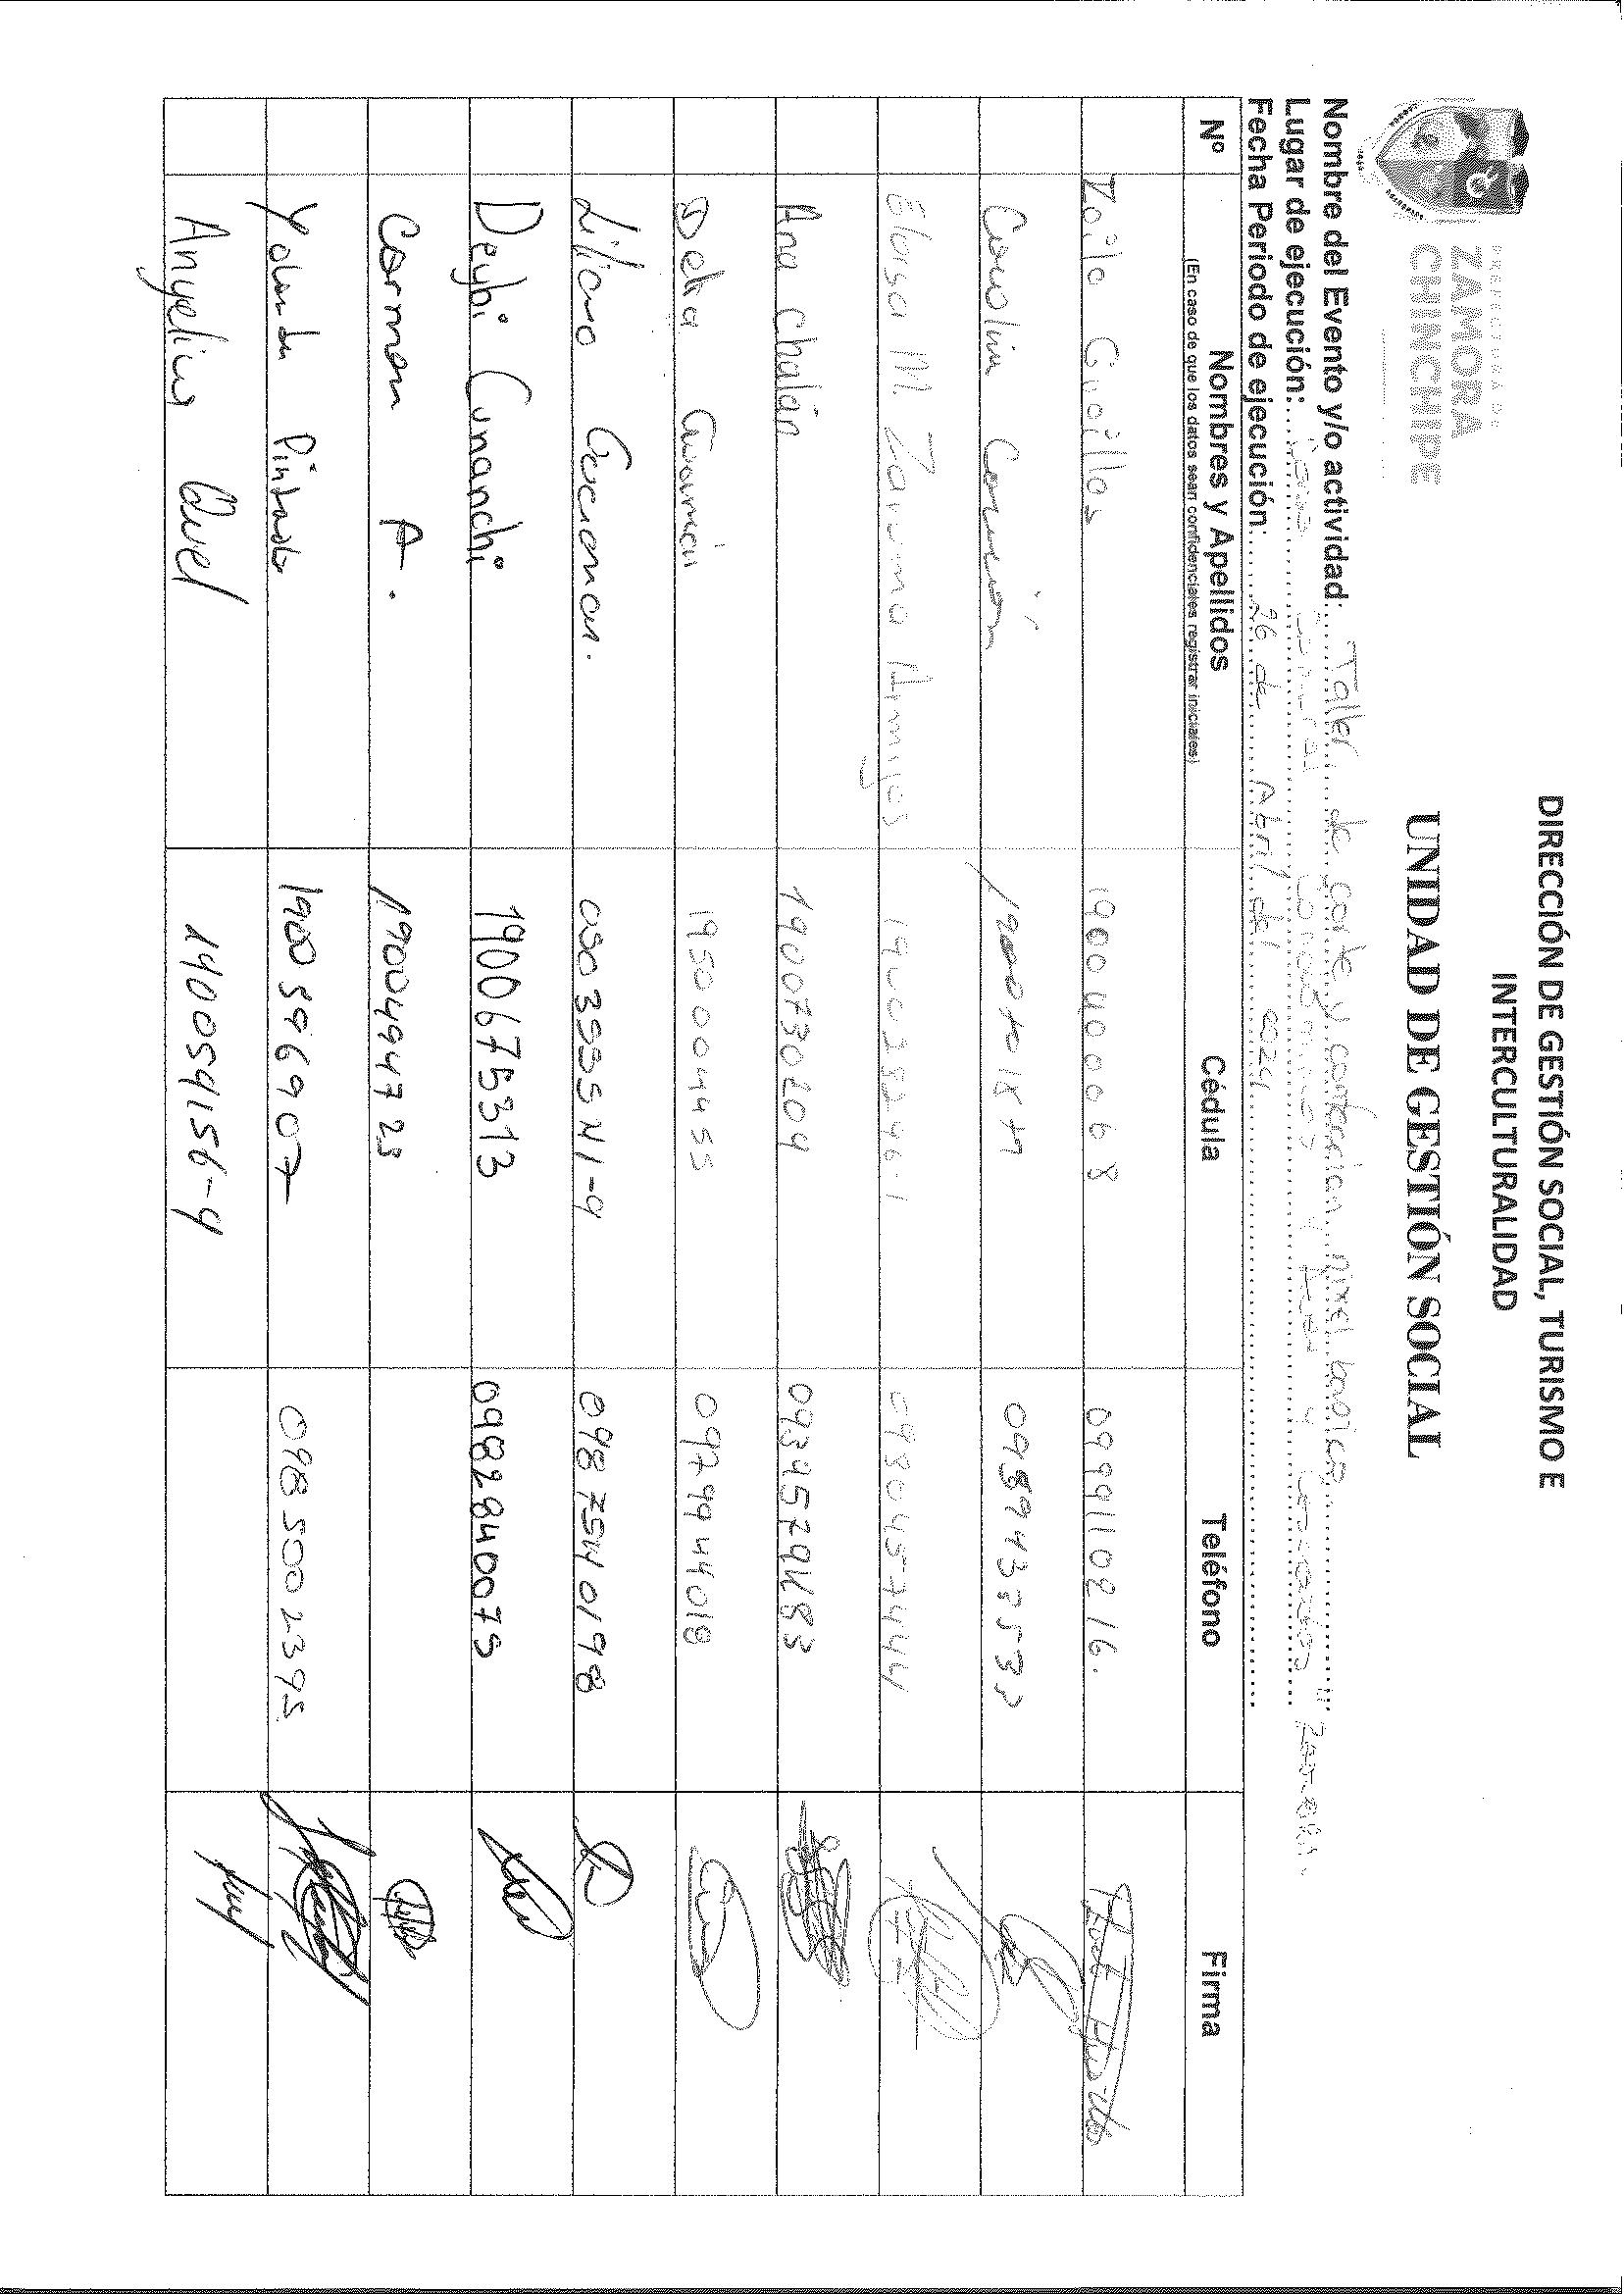 PREFECTURA DE
ZAMORA
CHINCHIPE
DIRECCIÓN DE GESTIÓN SOCIAL, TURISMO E
INTERCULTURALIDAD
UNIDAD DE GESTIÓN SOCIAL
Nombre del Evento y/o actividad: Taller de corte y confeccion nivel basico
Lugar de ejecución:
Fecha Periodo de ejecución: 26 de Abril del 2024
Nº Nombres y Apellidos Cédula Teléfono Firma
(En caso de que los datos sean confidenciales registrar iniciales)
Zoila Guaillas 1900400068 0999110216.
Carolin
Eloisa M. Zarumo Armijos 0980457444
Ana Chalán 1900730209 0939579483
Delia Guamán 1950004455 0979944018
Liliano 0987540198
Deybi Cunanchi 1900675313 0982840075
Carmen A. 1900494723
Yolanda Pintado 1900596907 0985002395
Anyeline Quel 190059156-9